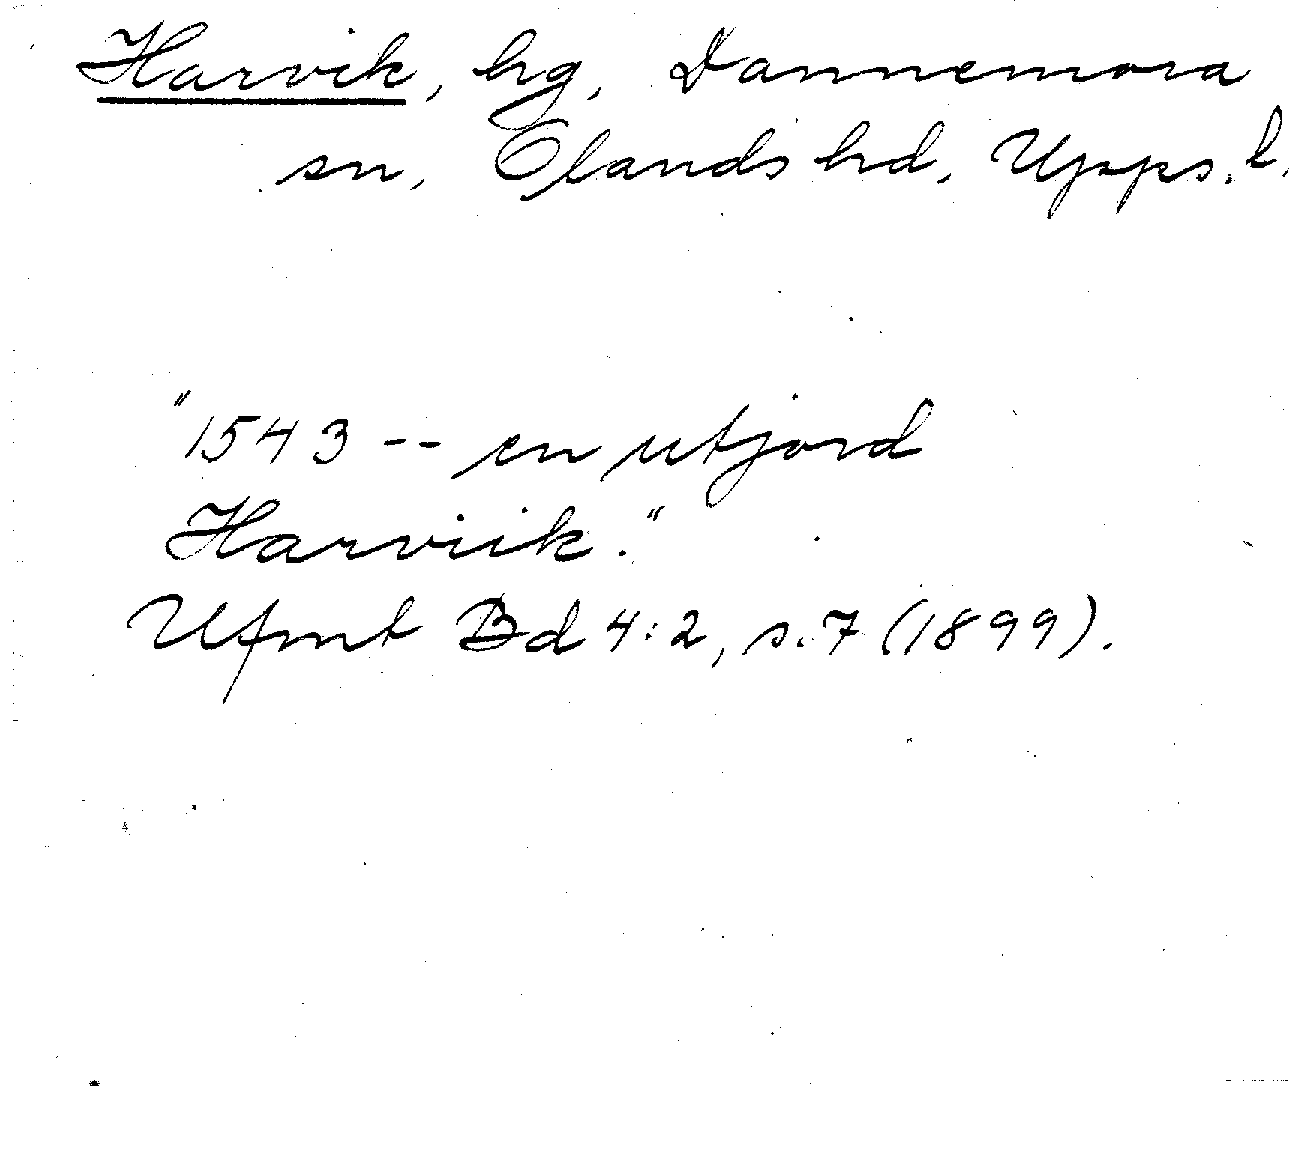 Harvik, hg, Dannemora
sn, Olands hd, Upps. l.
"1543 -- en utjord
Harviik."
Ufmt Bd 4:2, s. 7 (1899).